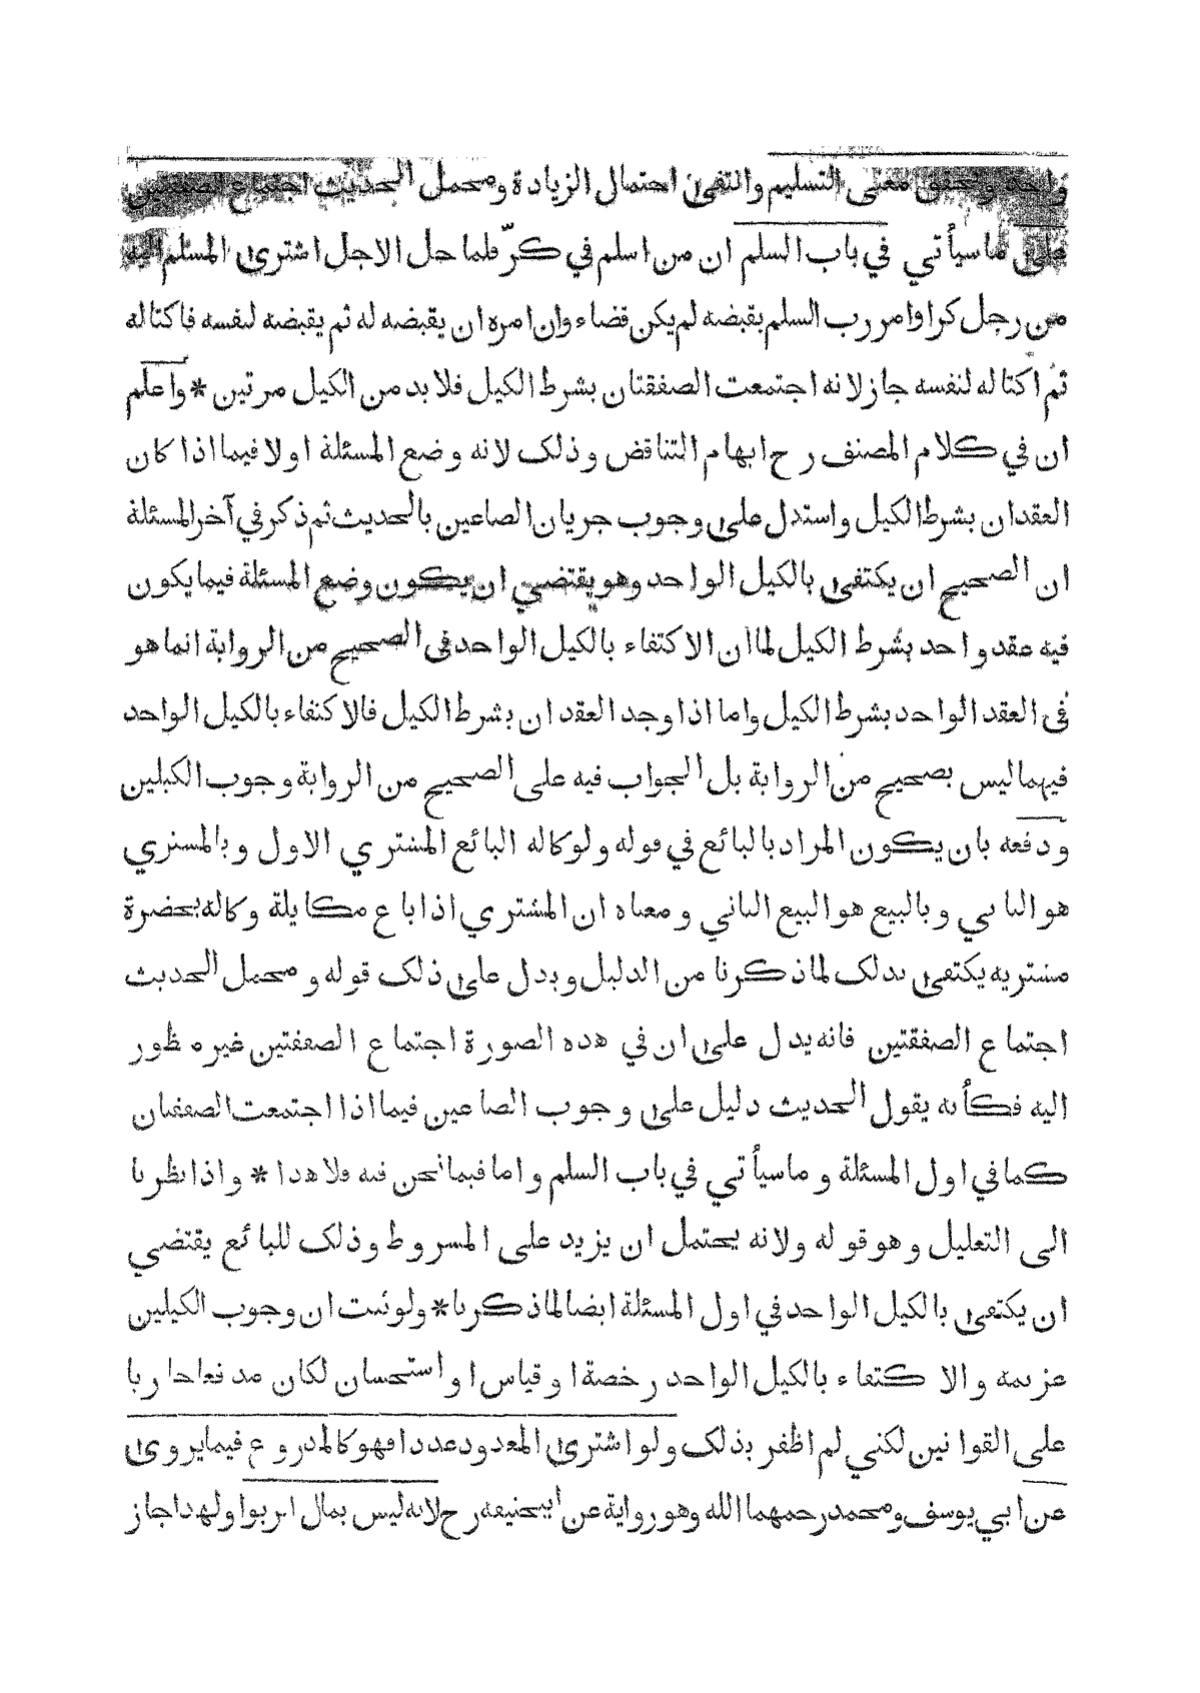 واحد وتحقق معنى التسليم وانتفى احتمال الزيادة ومحمل الحديث اجتماع الصفقتين
على ما سيأتي في باب السلم ان من اسلم في كرّ فلما حل الاجل اشترى المسلم اليه
من رجل كرا وامر رب السلم بقبضه لم يكن قضاء وان امره ان يقبضه له ثم يقبضه لنفسه فاكتاله
ثم اكتاله لنفسه جاز لانه اجتمعت الصفقتان بشرط الكيل فلا بد من الكيل مرتين * واعلم
ان في كلام المصنف رح ابهام التناقض وذلك لانه وضع المسئلة اولا فيما اذا كان
العقدان بشرط الكيل واستدل على وجوب جريان الصاعين بالحديث ثم ذكر في آخر المسئلة
ان الصحيح ان يكتفى بالكيل الواحد وهو يقتضي ان يكون وضع المسئلة فيما يكون
فيه عقد واحد بشرط الكيل لما ان الاكتفاء بالكيل الواحد في الصحيح من الرواية انما هو
في العقد الواحد بشرط الكيل واما اذا وجد العقدان بشرط الكيل فالاكتفاء بالكيل الواحد
فيهما ليس بصحيح من الرواية بل الجواب فيه على الصحيح من الرواية وجوب الكيلين
ودفعه بان يكون المراد بالبائع في قوله ولو كاله البائع المشتري الاول وبالمشتري
هو الثاني وبالبيع هو البيع الثاني ومعناه ان المشتري اذا باع مكايلة وكاله بحضرة
مشتريه يكتفى بذلك لما ذكرنا من الدليل ويدل على ذلك قوله ومحمل الحديث
اجتماع الصفقتين فانه يدل على ان في هذه الصورة اجتماع الصفقتين غير منظور
اليه فكأنه يقول الحديث دليل على وجوب الصاعين فيما اذا اجتمعت الصفقتان
كما في اول المسئلة وما سيأتي في باب السلم واما فيما نحن فيه فلا هذا * واذا نظرنا
الى التعليل وهو قوله ولانه يحتمل ان يزيد على المشروط وذلك للبائع يقتضي
ان يكتفى بالكيل الواحد في اول المسئلة ايضا لما ذكرنا * ولو ثبت ان وجوب الكيلين
عزيمة والاكتفاء بالكيل الواحد رخصة او قياس او استحسان لكان مدفعا جاريا
على القوانين لكني لم اظفر بذلك ولو اشترى المعدود عددا فهو كالمذروع فيما يروى
عن ابي يوسف ومحمد رحمهما الله وهو رواية عن ابيحنيفه رح لانه ليس بمال الربوا ولهذا جاز